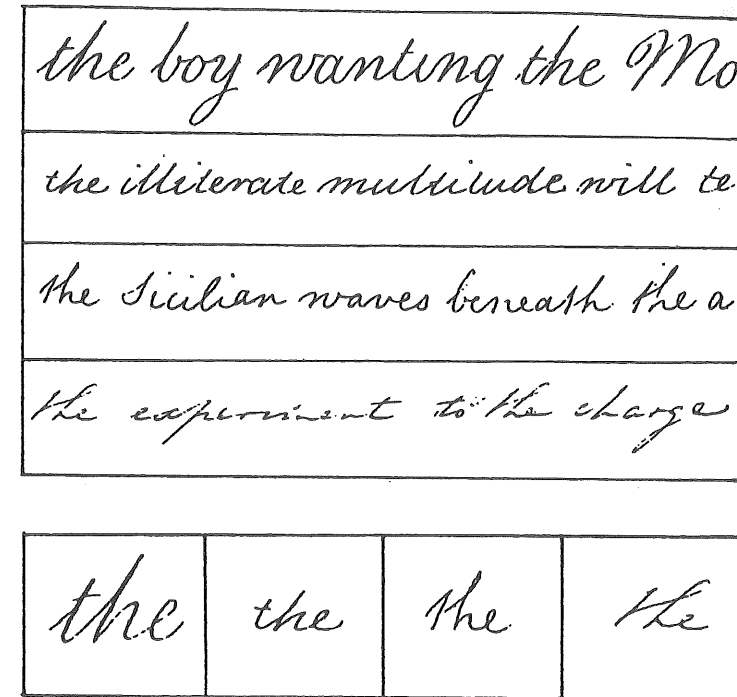 the boy wanting the Mo
the illiterate multitude will te
the Sicilian waves beneath the a
the experiment to the charge
the the the the